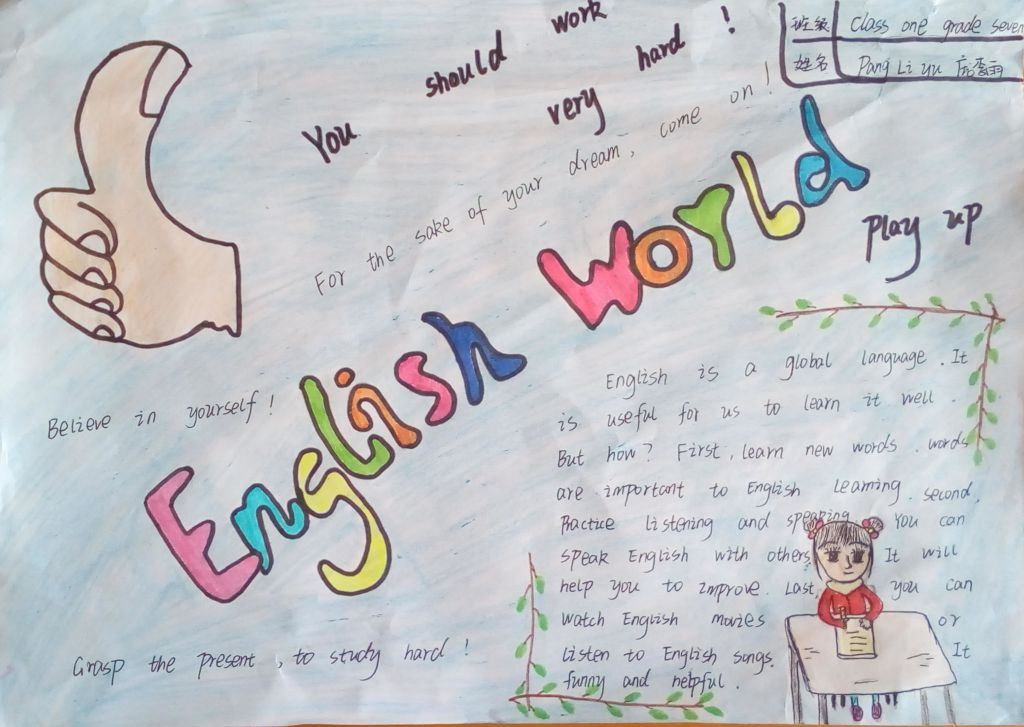 You should work very hard !
班级 Class one grade seven
姓名 Pang Li yu
For the sake of your dream, come on !
English World
Play up
Believe in yourself !
English is a global language . It
is useful for us to learn it well .
But how? First, learn new words . words
are important to English Learning . second,
Practice listening and speaking You can
speak English with others It will
help you to improve. Last, you can
watch English movies or
Listen to English songs. It
funny and helpful .
Grasp the present , to study hard !